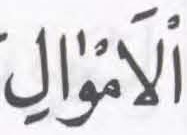 اْلاَمْوٰالِ